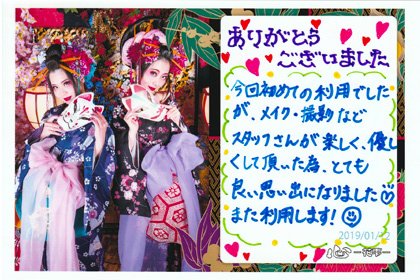 ありがとう
ございました
今回初めての利用でした
が、メイク・撮影など
スタッフさんが楽しく、優し
くして頂いた為、とても
良い思い出になりました♡
また利用します!
2019/01/12